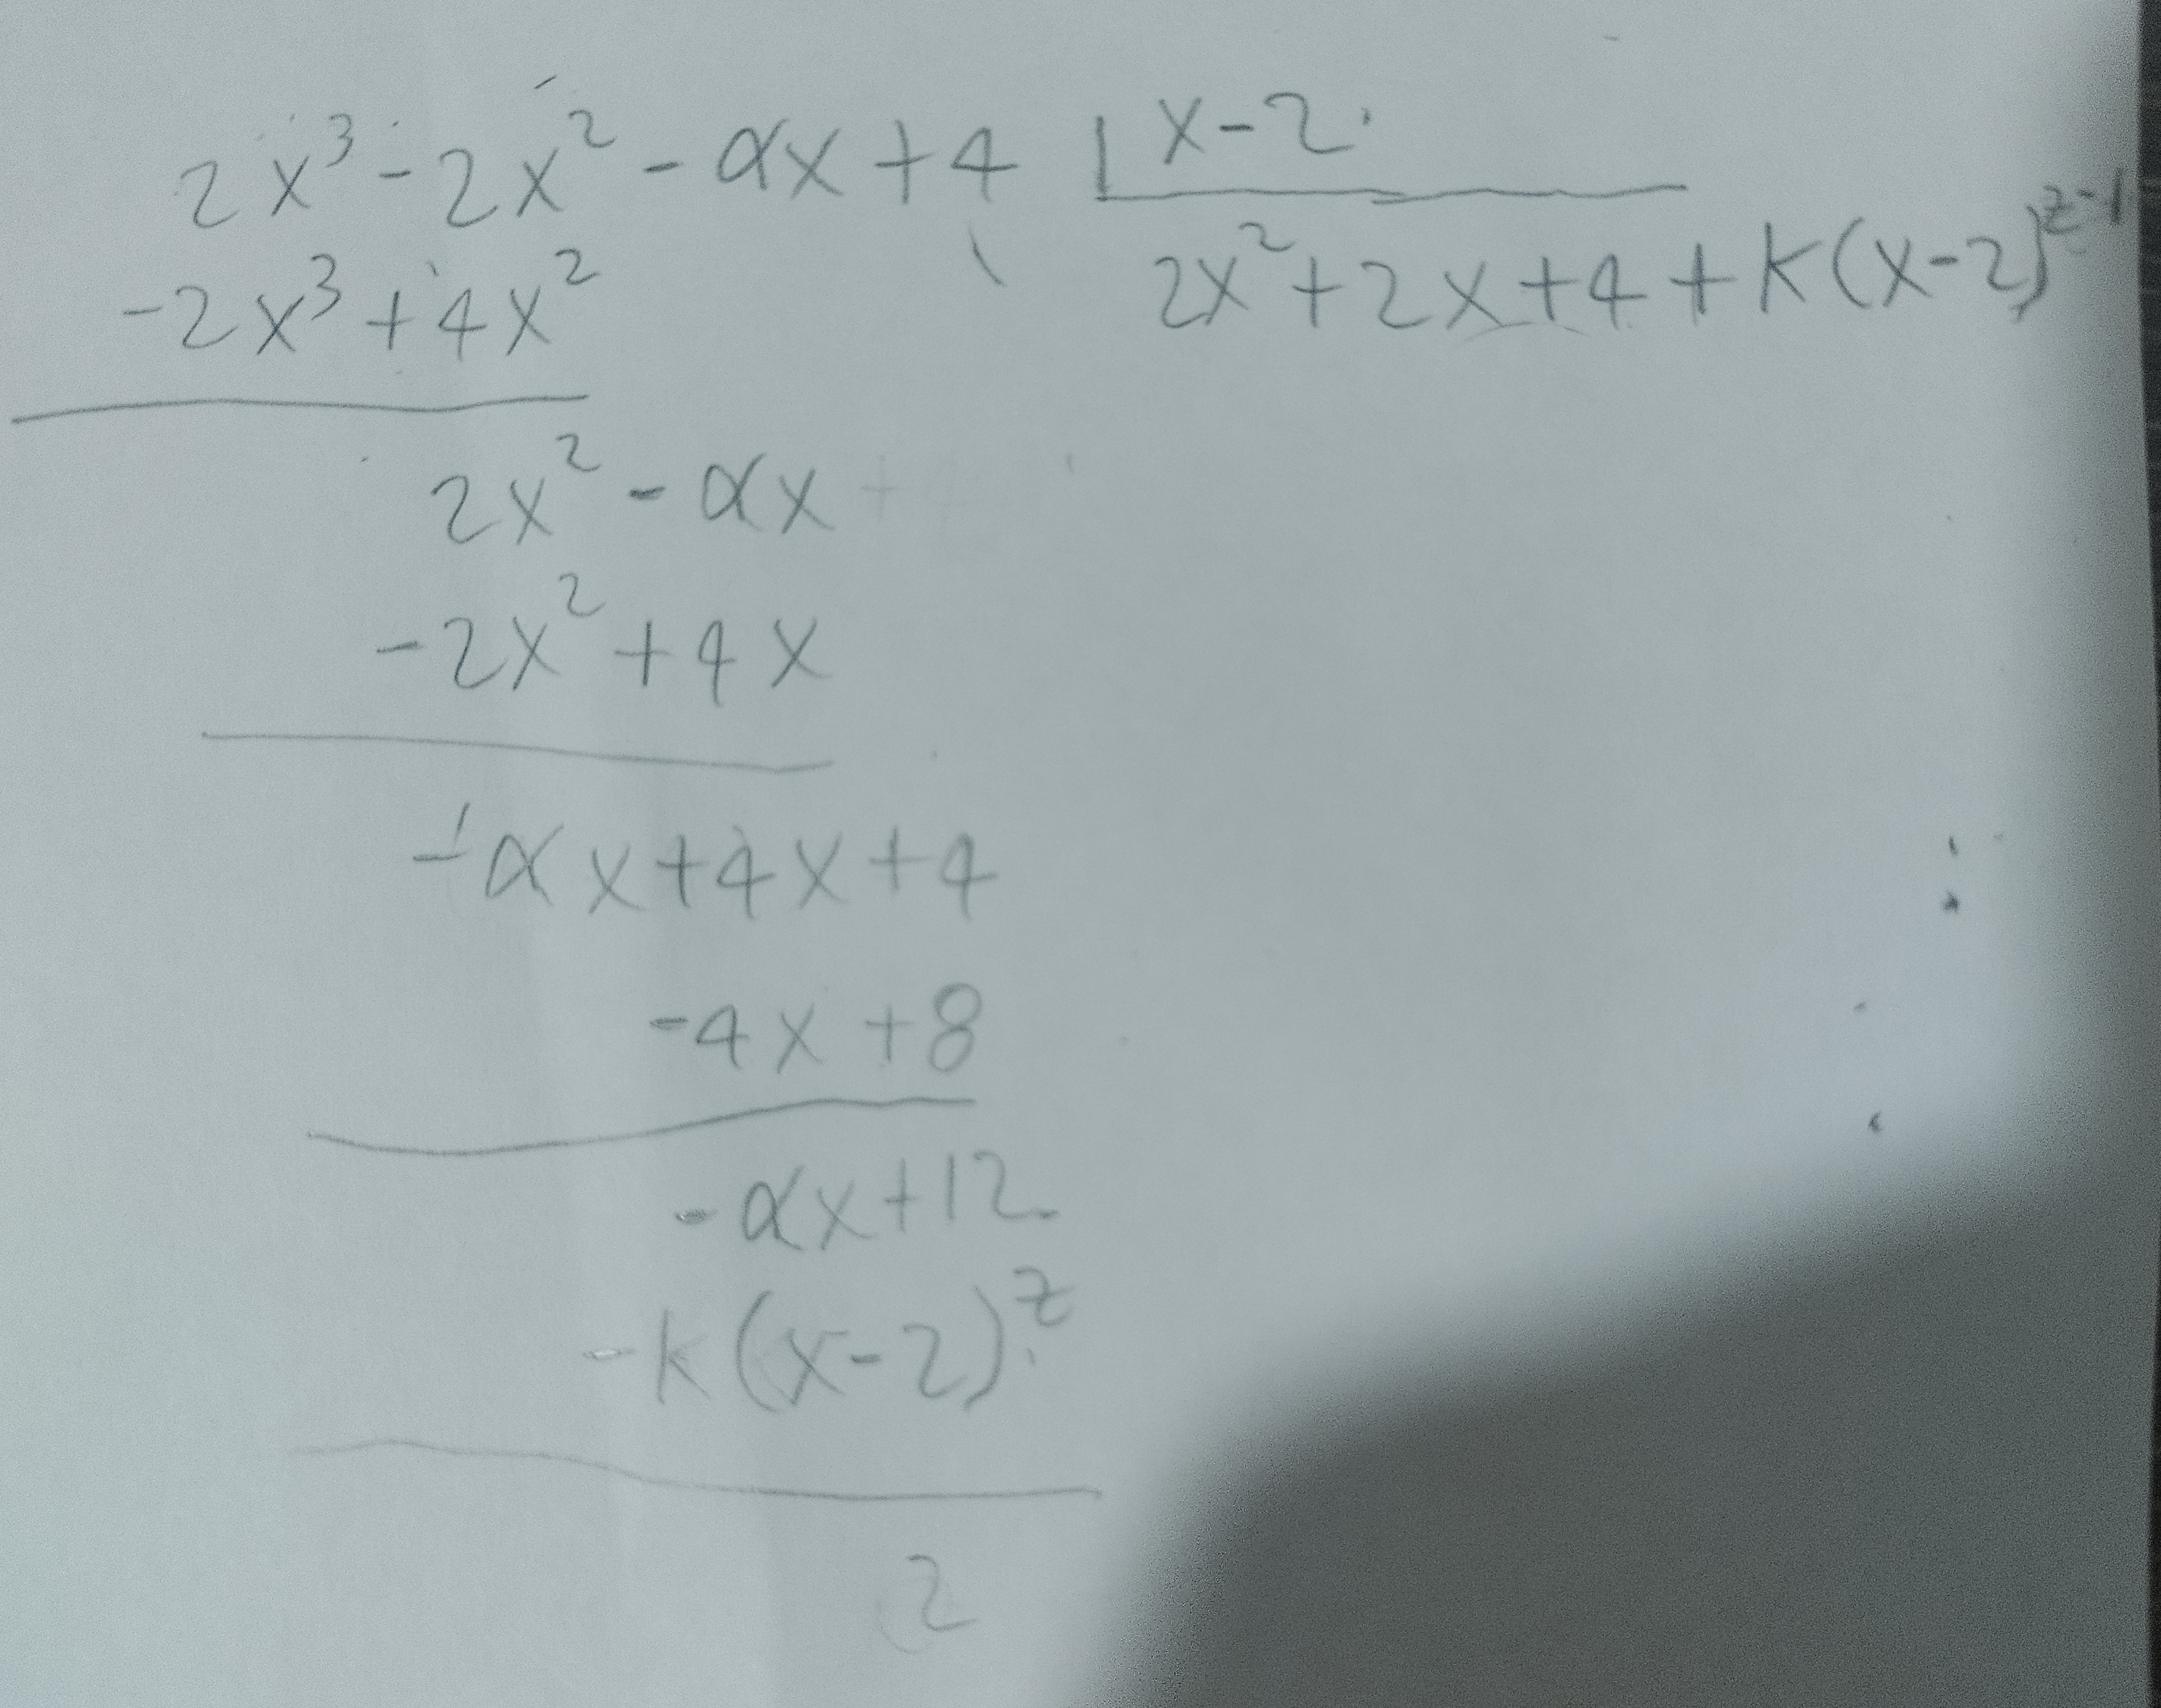 2x³ - 2x² - αx + 4 | x - 2
-2x³ + 4x²
2x² + 2x + 4 + k(x-2)^(z-1)
2x² - αx
-2x² + 4x
-αx + 4x + 4
-4x + 8
-αx + 12
-k(x-2)^z
2